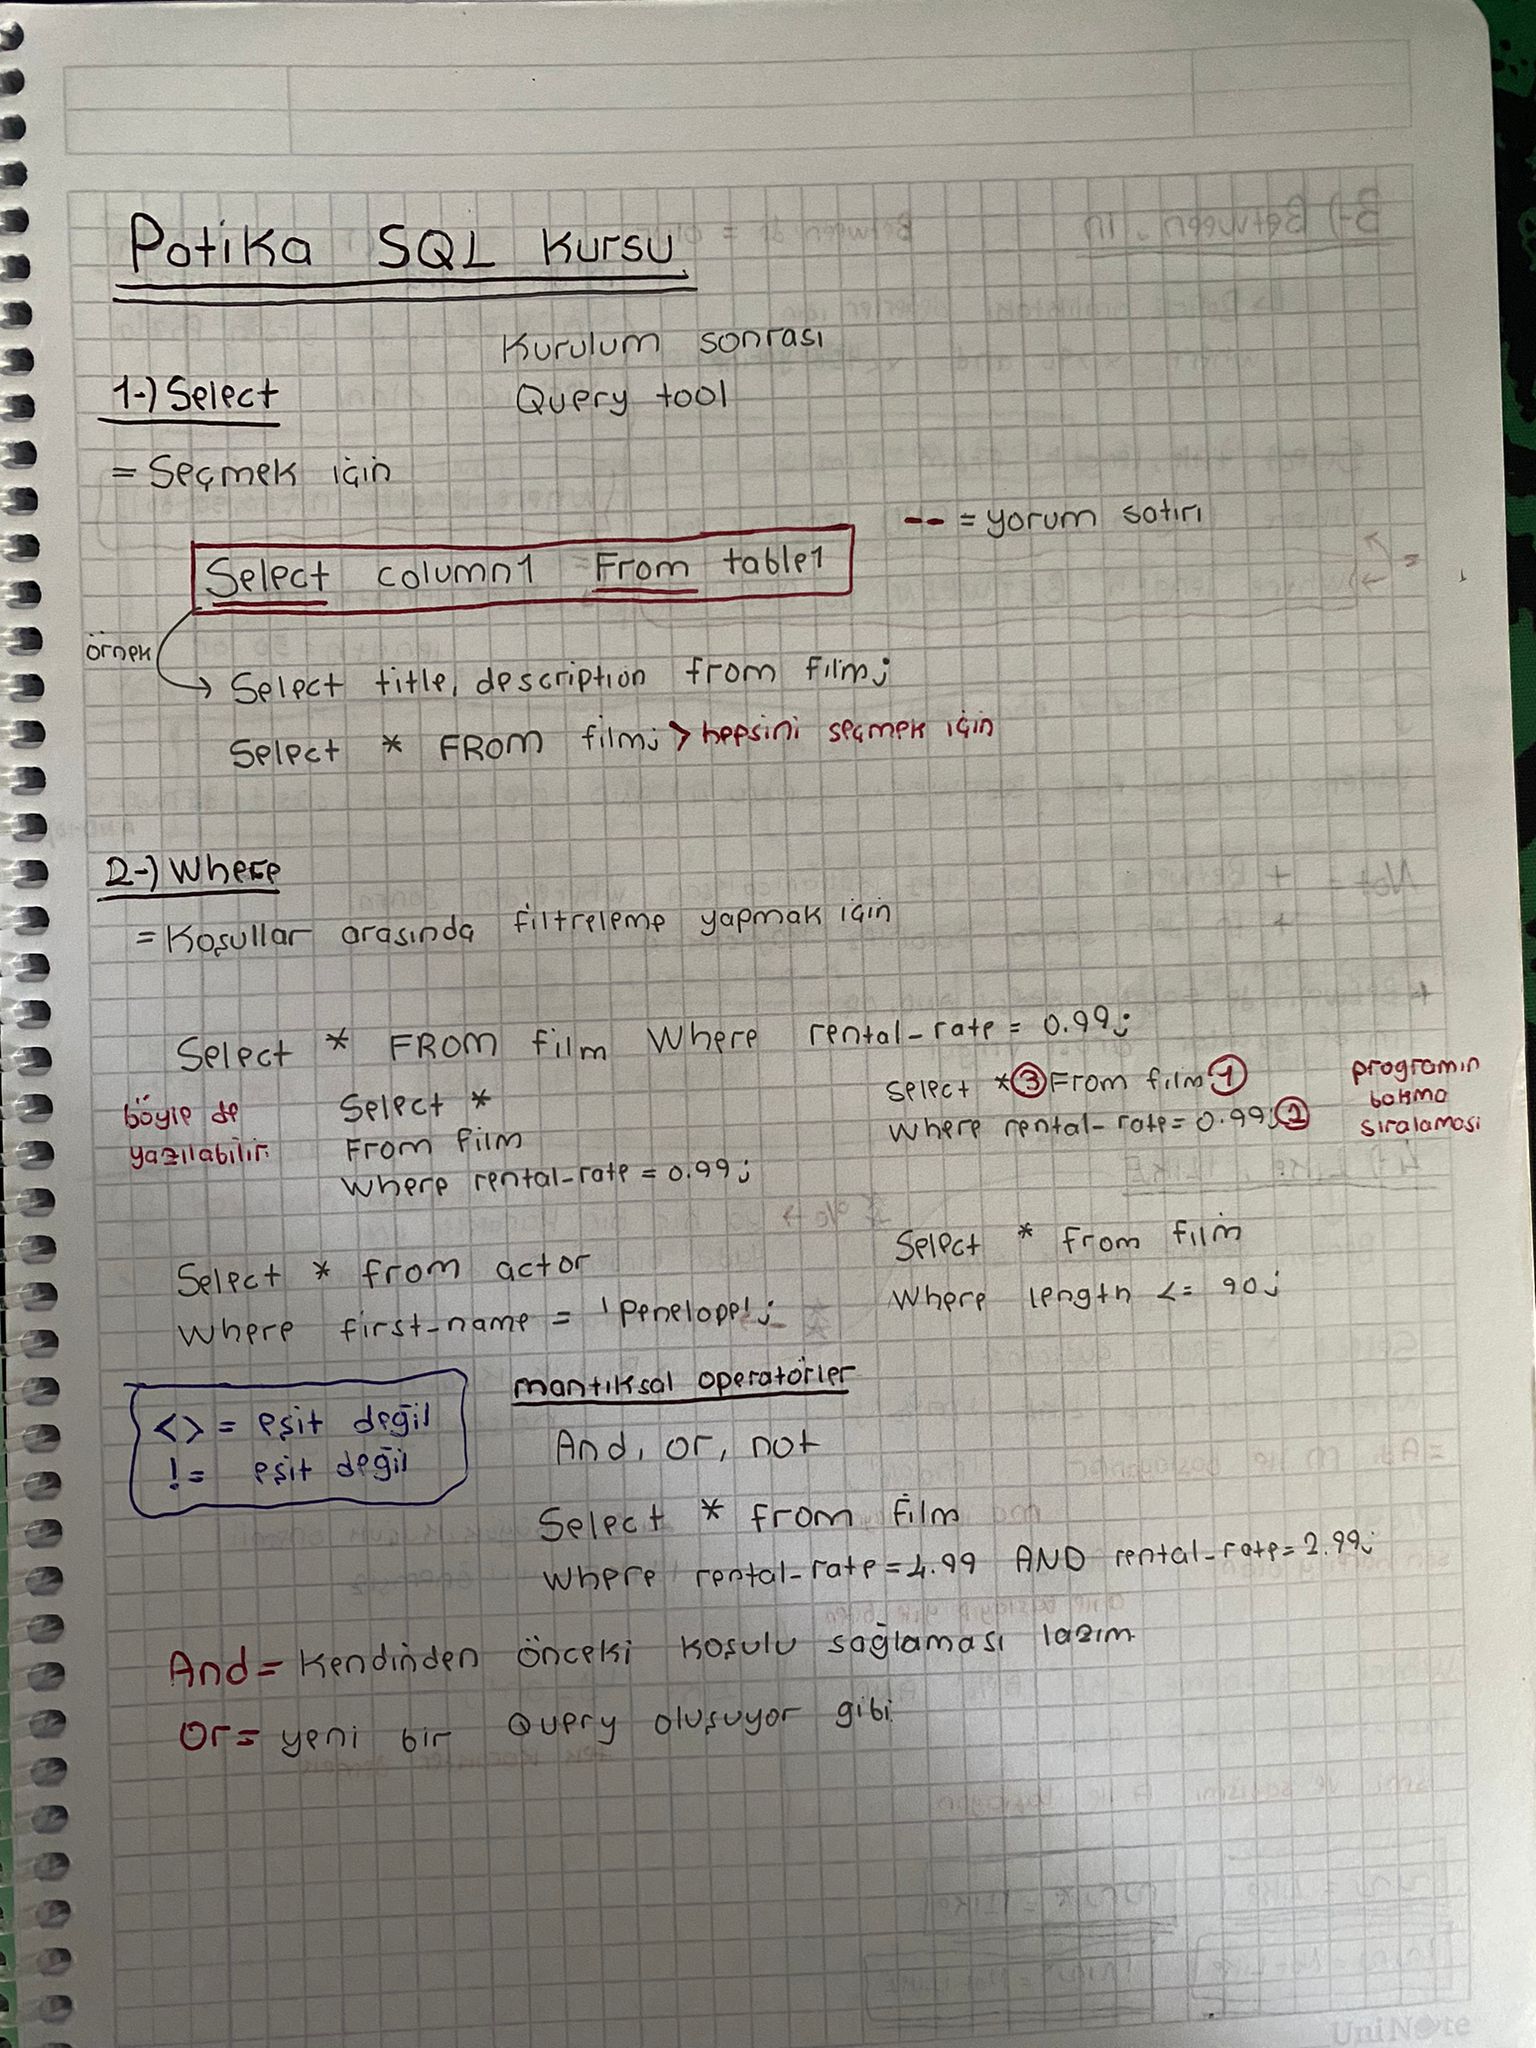 Patika SQL Kursu
Kurulum sonrası
1-) Select
Query tool
= Seçmek için
-- = yorum satırı
Select column1 From table1
örnek
Select title, description from film;
Select * FROM film; > hepsini seçmek için
2-) Where
= Koşullar arasında filtreleme yapmak için
Select * FROM film Where rental_rate = 0.99;
böyle de
yazılabilir.
Select *
From film
Where rental_rate = 0.99;
Select * 3 From film 1
Where rental_rate = 0.99; 2
programın
bakma
sıralaması
Select * from actor
Where first_name = 'Penelope';
Select * from film
Where length <= 90;
<> = eşit değil
!= eşit değil
mantıksal operatörler
And, or, not
Select * from film
Where rental_rate = 4.99 AND rental_rate = 2.99;
And = Kendinden önceki koşulu sağlaması lazım
Or = yeni bir Query oluşuyor gibi
UniNote